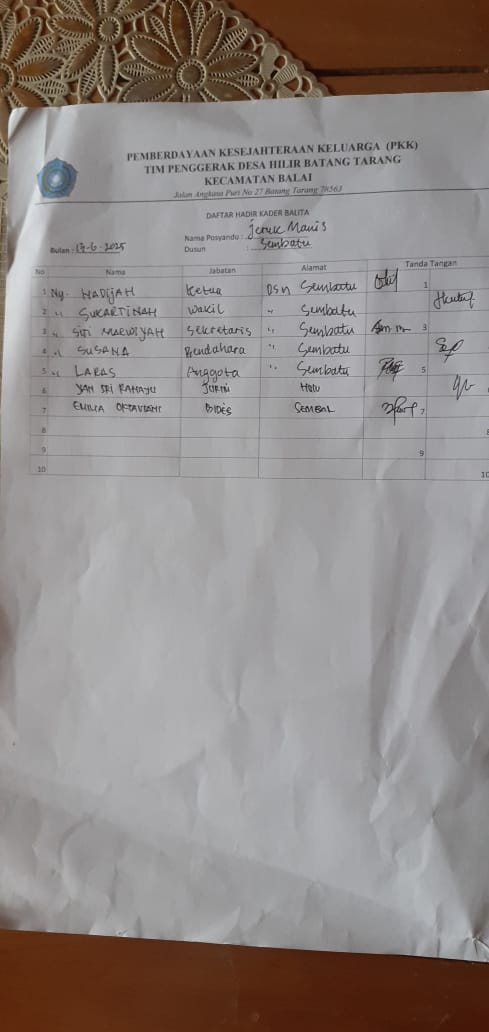 PEMBERDAYAAN KESEJAHTERAAN KELUARGA (PKK)
TIM PENGGERAK DESA HILIR BATANG TARANG
KECAMATAN BALAI
Jalan Angkasa Puri No 27 Batang Tarang 78563
DAFTAR HADIR KADER BALITA
Nama Posyandu : Jeruk Manis
Bulan : 17-6-2025 Dusun : Sembatu
No Nama Jabatan Alamat Tanda Tangan
1 Ny. HADIJAH Ketua Dsn Sembatu 1
2 " SUKARTINAH Wakil " Sembatu
3 " Siti MARWIYAH Sekretaris " Sembatu 3
4 " SUSANA Bendahara " Sembatu
5 " LARAS Anggota " Sembatu 5
6 YAN SRI RAHAYU
7 EMILIA OKTAVIANI BIDES SEMBAL 7
8 8
9 9
10 10